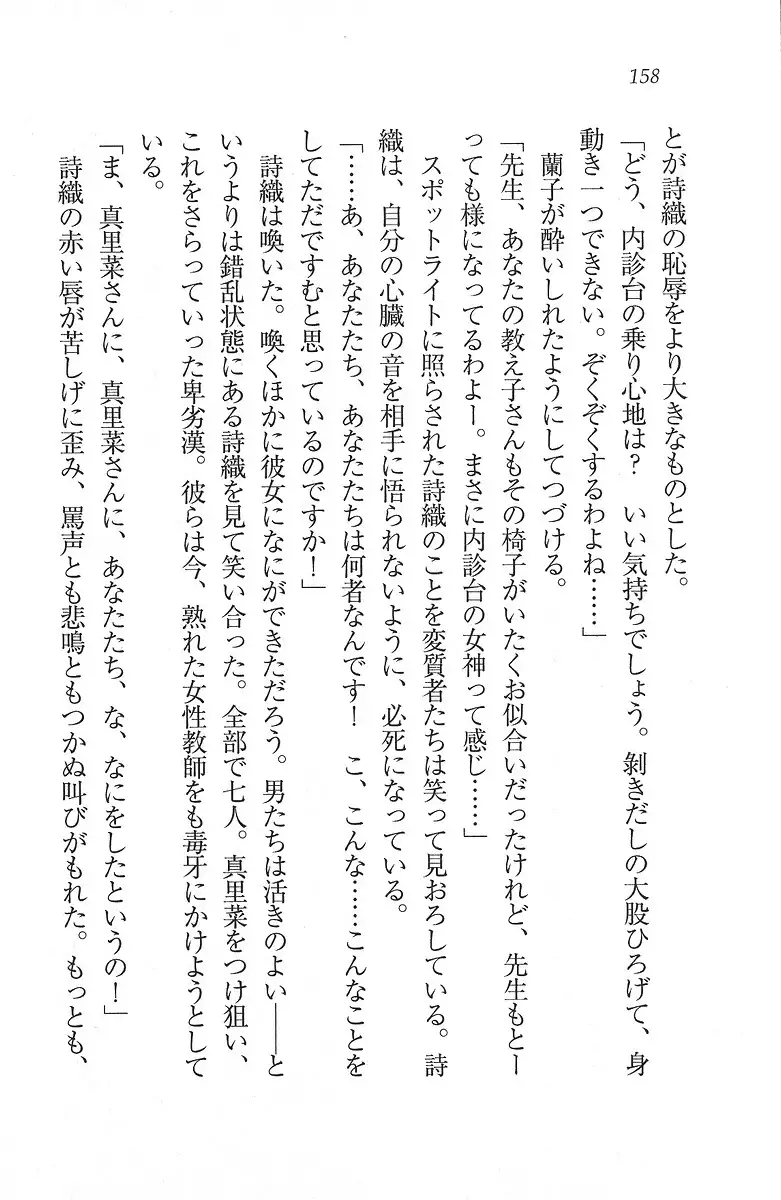 158
とが詩織の恥辱をより大きなものとした。
「どう、内診台の乗り心地は？　いい気持ちでしょう。剝きだしの大股ひろげて、身
動き一つできない。ぞくぞくするわよね……」
蘭子が酔いしれたようにしてつづける。
「先生、あなたの教え子さんもその椅子がいたくお似合いだったけれど、先生もとー
っても様になってるわよー。まさに内診台の女神って感じ……」
スポットライトに照らされた詩織のことを変質者たちは笑って見おろしている。詩
織は、自分の心臓の音を相手に悟られないように、必死になっている。
「……あ、あなたたち、あなたたちは何者なんです！　こ、こんな……こんなことを
してただですむと思っているのですか！」
詩織は喚いた。喚くほかに彼女になにができただろう。男たちは活きのよい――と
いうよりは錯乱状態にある詩織を見て笑い合った。全部で七人。真里菜をつけ狙い、
これをさらっていった卑劣漢。彼らは今、熟れた女性教師をも毒牙にかけようとして
いる。
「ま、真里菜さんに、真里菜さんに、あなたたち、な、なにをしたというの！」
詩織の赤い唇が苦しげに歪み、罵声とも悲鳴ともつかぬ叫びがもれた。もっとも、